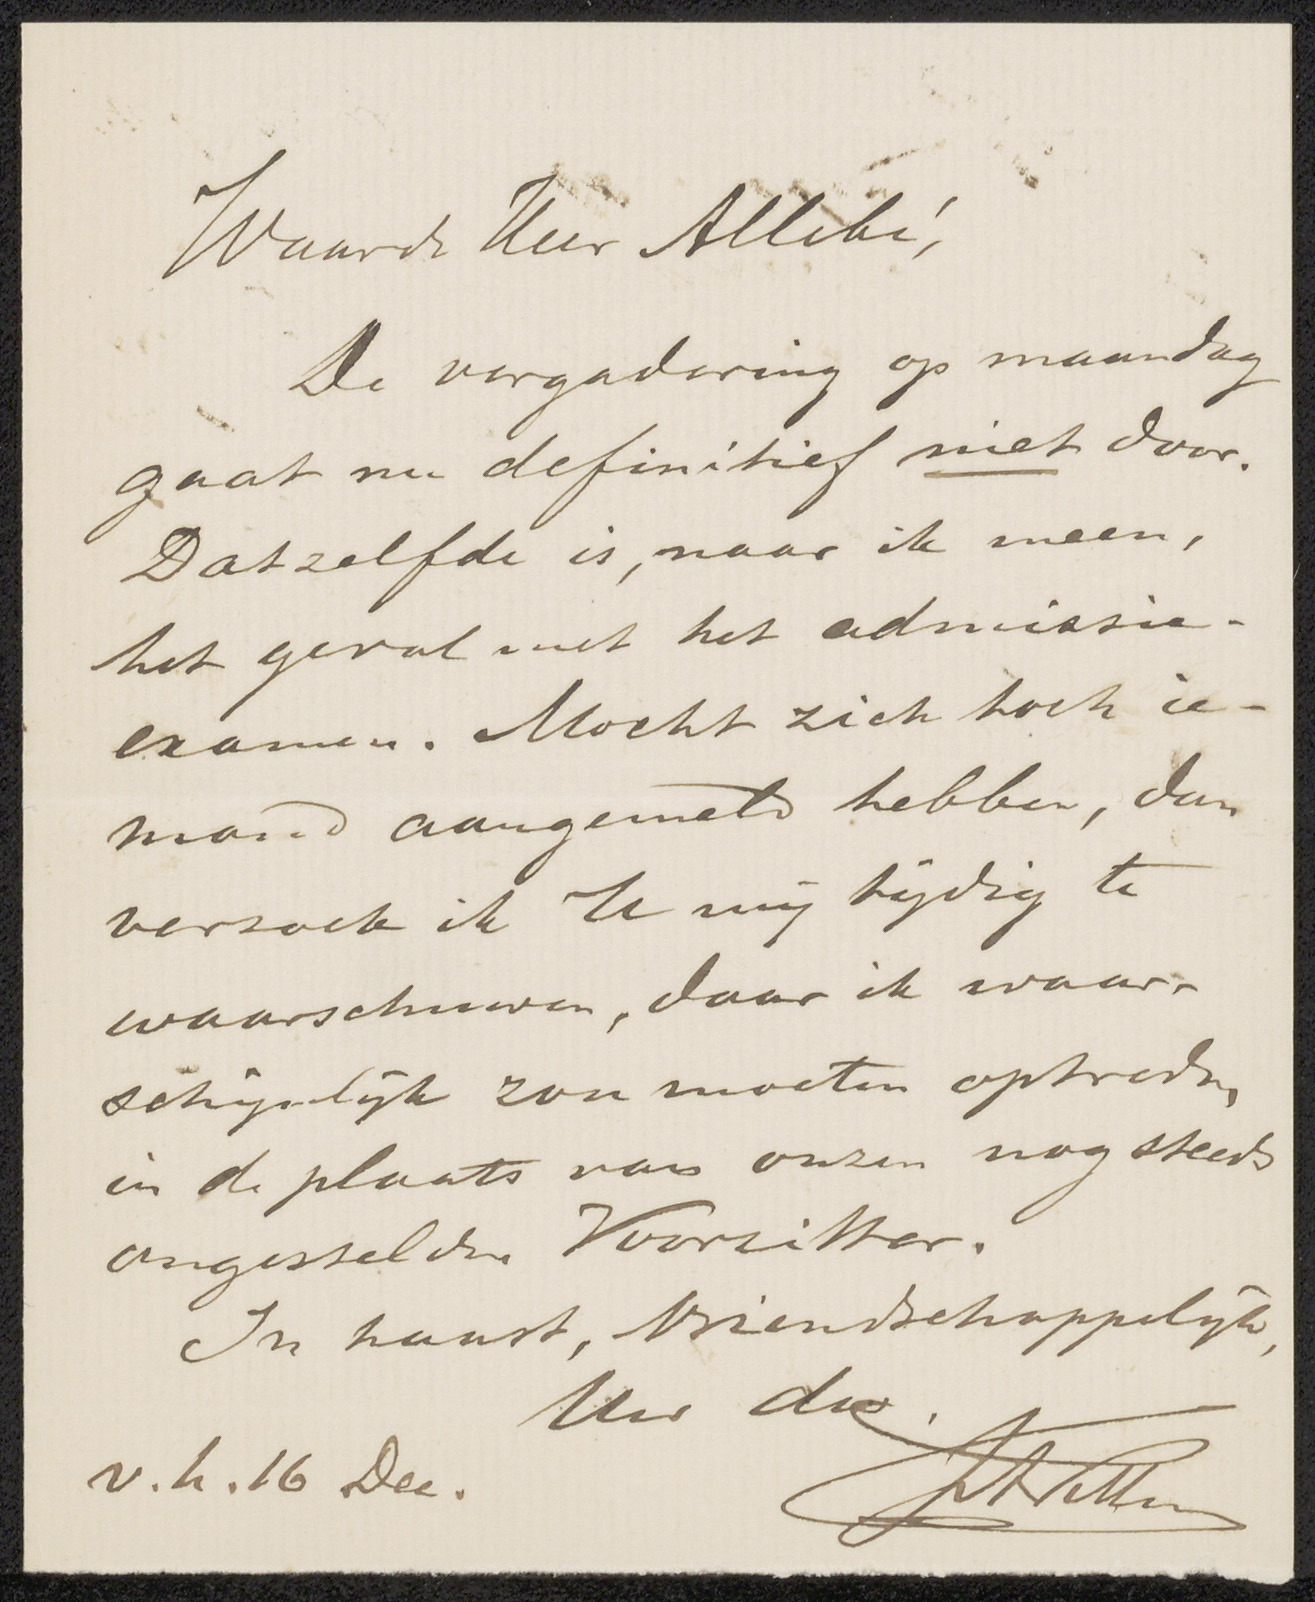 Waarde Heer Allebé,
De vergadering op maandag
gaat nu definitief niet door.
Datzelfde is, naar ik meen,
het geval met het admissie-
examen. Mocht zich toch ie-
mand aangemeld hebben, dan
verzoek ik U mij tijdig te
waarschuwen, daar ik waar-
schijnlijk zou moeten optreden,
in de plaats van onzen nog steeds
ongestelden Voorzitter.
In haast, Vriendschappelijk,
Uw dw.
v. h. 16 Dec.